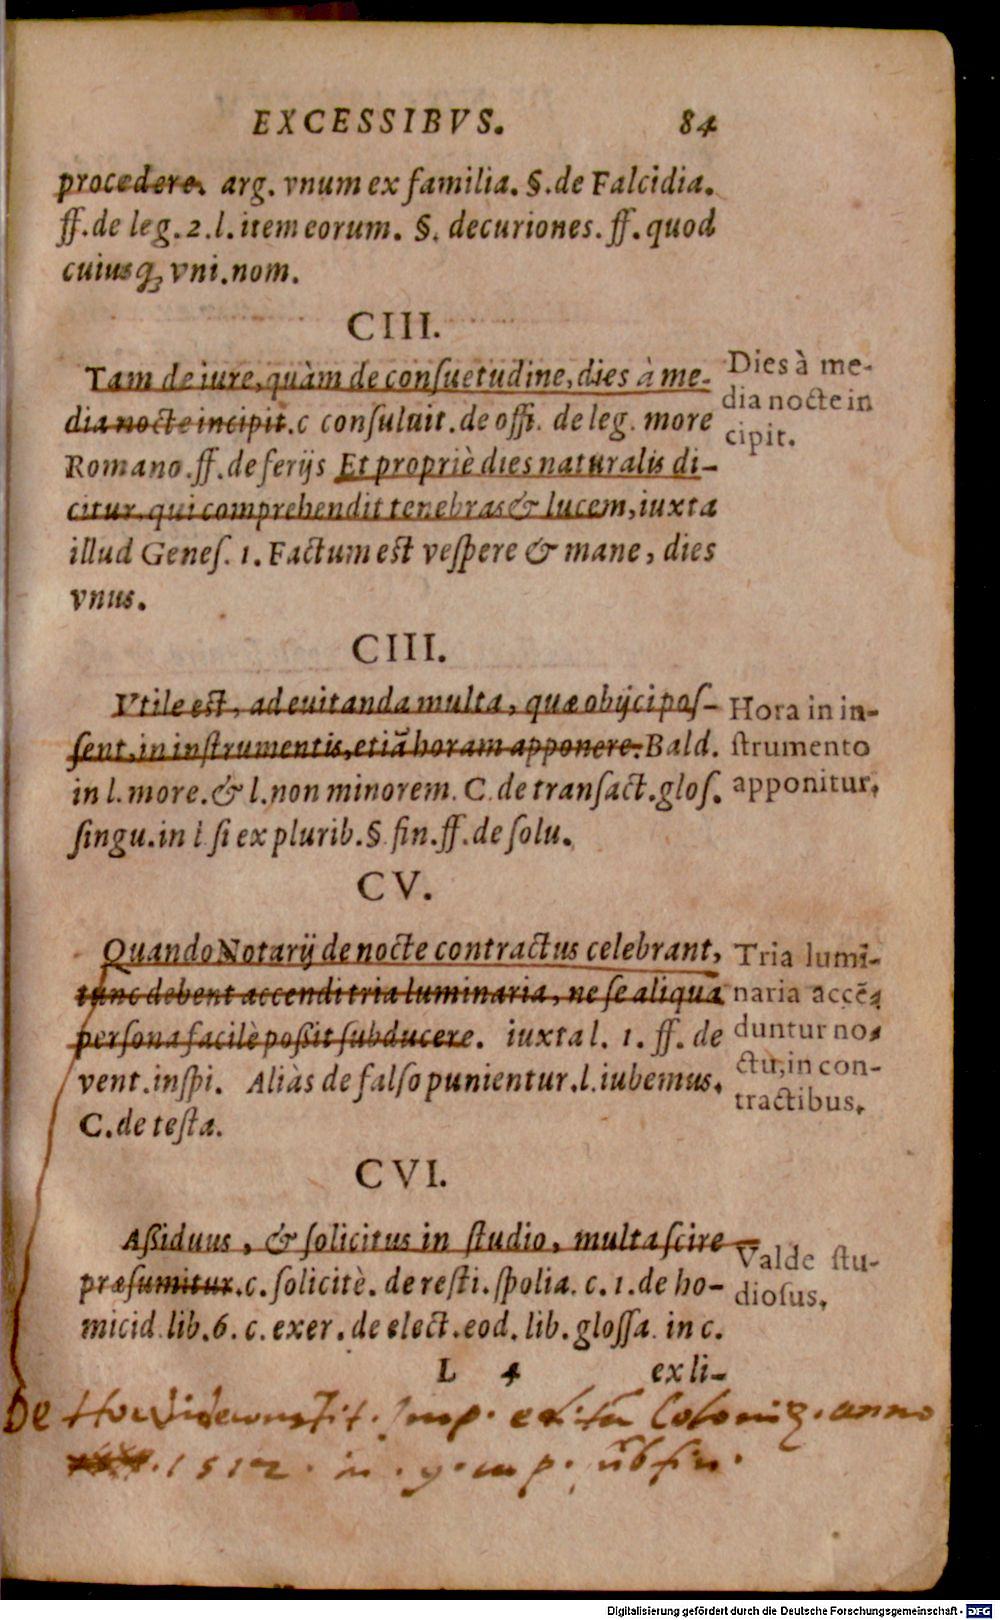 EXCESSIBVS. 84
procedere. arg. vnum ex familia. §. de Falcidia.
ff. de leg. 2. l. item eorum. §. decuriones. ff. quod
cuiusq; vni. nom.
CIII.
Tam de iure, quàm de conſuetudine, dies à me-
dia nocte incipit. c conſuluit. de offi. de leg. more
Romano. ff. de ferijs Et propriè dies naturalis di-
citur, qui comprehendit tenebras & lucem, iuxta
illud Geneſ. 1. Factum eſt veſpere & mane, dies
vnus.
Dies à me-
dia nocte in
cipit.
CIII.
Vtile eſt, ad euitanda multa, quæ obijci poſ-
ſent, in inſtrumentis, etiã horam apponere. Bald.
in l. more. & l. non minorem. C. de tranſact. gloſ.
ſingu. in l ſi ex plurib. § fin. ff. de ſolu.
Hora in in-
ſtrumento
apponitur.
CV.
Quando Notarij de nocte contractus celebrant,
tunc debent accendi tria luminaria, ne ſe aliqua
perſona facilè poßit ſubducere. iuxta l. 1. ff. de
vent. inſpi. Aliàs de falſo punientur. l. iubemus.
C. de teſta.
Tria lumi-
naria accē-
duntur no-
ctu, in con-
tractibus.
CVI.
Aßiduus, & ſolicitus in ſtudio, multa ſcire
præſumitur. c. ſolicitè. de reſti. ſpolia. c. 1. de ho-
micid. lib. 6. c. exer. de elect. eod. lib. gloſſa. in c.
Valde ſtu-
dioſus.
L 4 exli-
De Imp. Coloniæ. anno
1512. in
Digitalisierung gefördert durch die Deutsche Forschungsgemeinschaft - DFG